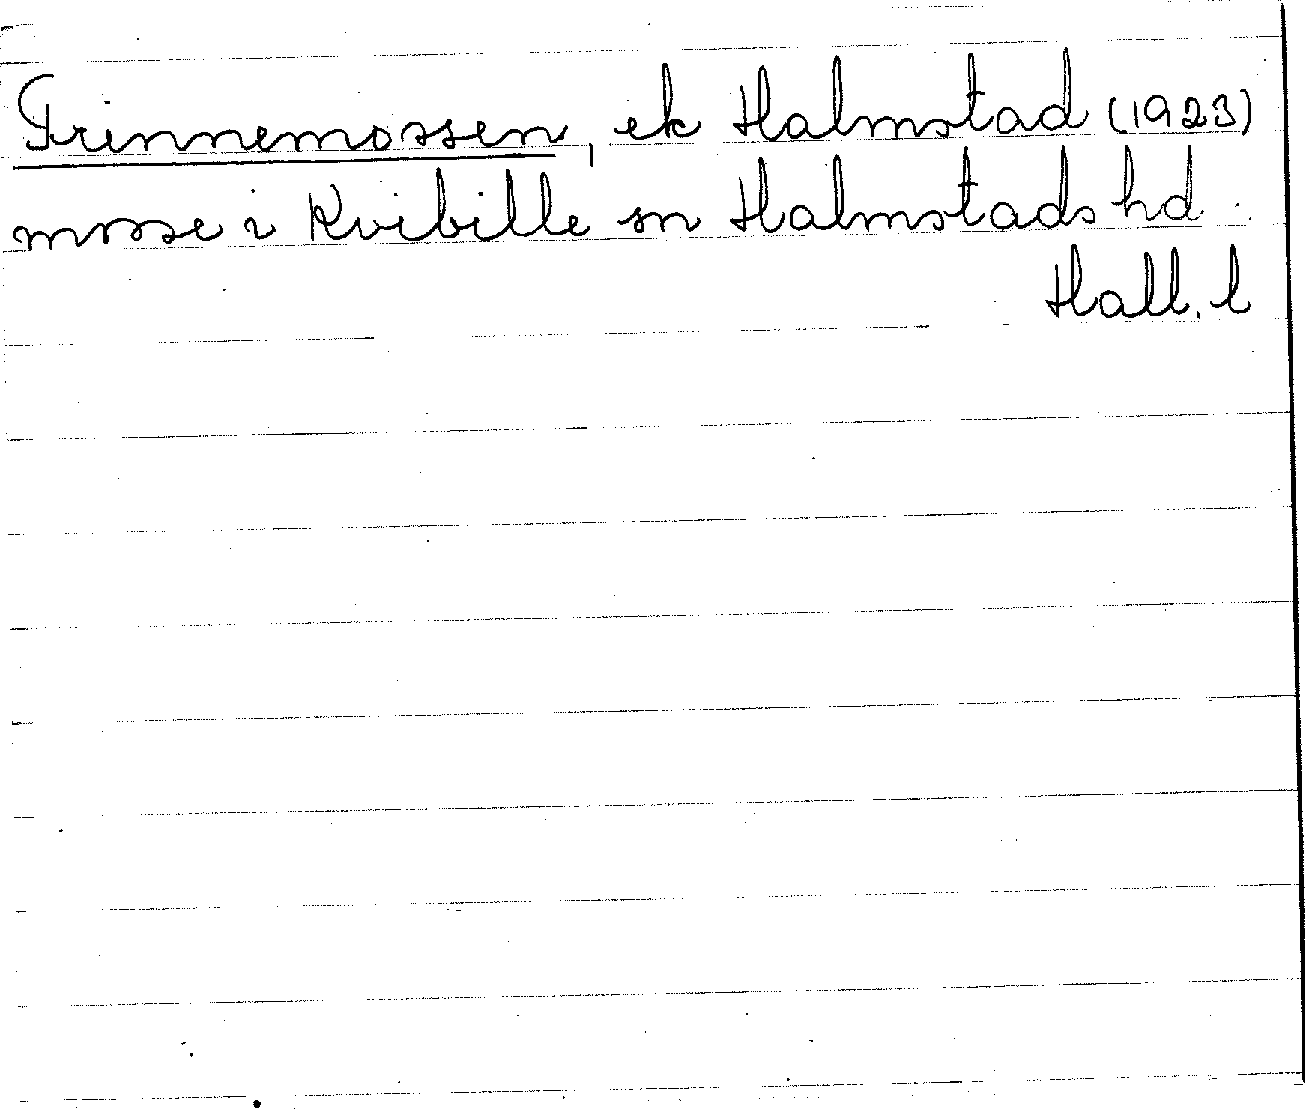 Grinnemossen, ek Halmstad (1923)
mosse i Kvibille sn Halmstads hd
Hall. l